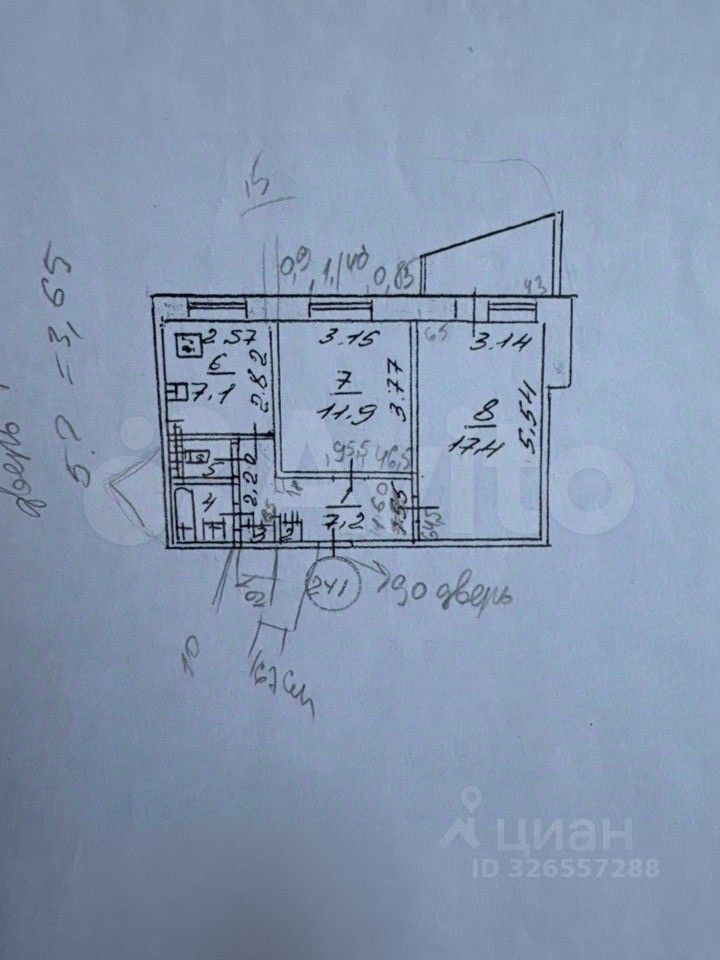 15
0,9
1,40
0,85
43
65
2.57
6
7,1
2.82
3.15
7
11.9
3.77
3.14
8
17.4
5.54
95,5
46,5
5
2.20
4
1
7,2
1.60
1.55
64,5
241
90 дверь
10
67 см
дверь
5.2 = 3,65
Avito
циан
ID 326557288